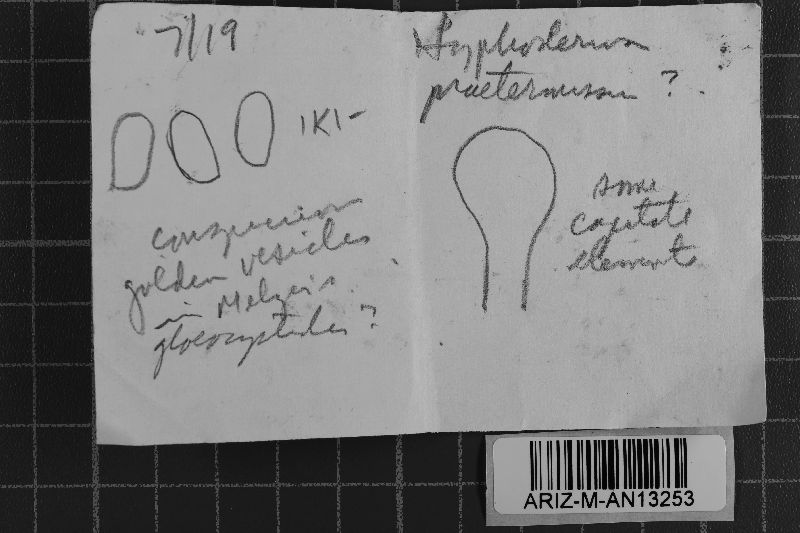 7/19
IKI-
conspicuous
golden vesicles
in Melzers.
gloeocystidia?
Hyphoderma
praetermissum ?.
some
capitate
elements
ARIZ-M-AN13253